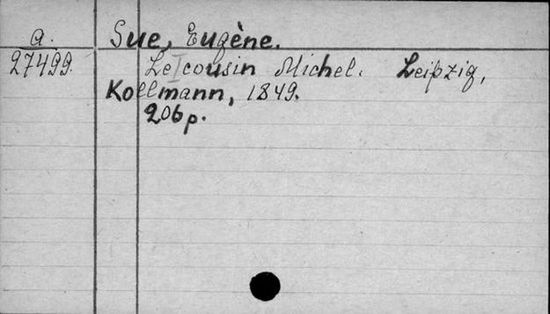 a. Sue, Eugène.
27499. Le cousin Michel. Leipzig,
Kollmann, 1849.
206 p.